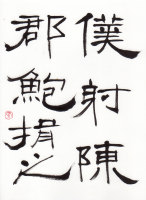 僕射陳
郡鮑捐之